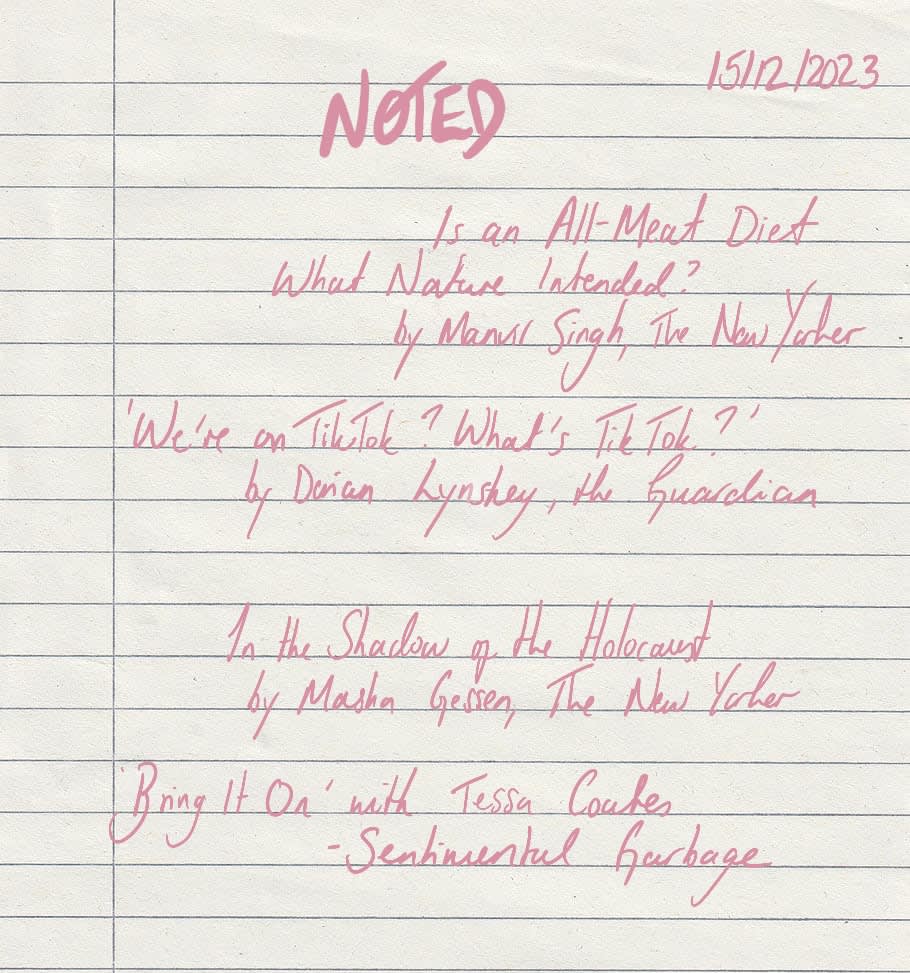 15/12/2023
NOTED
Is an All-Meat Diet
What Nature Intended?
by Manvir Singh, The New Yorker
'We're on TikTok? What's TikTok?'
by Dorian Lynskey, the Guardian
In the Shadow of the Holocaust
by Masha Gessen, The New Yorker
'Bring It On' with Tessa Coates
- Sentimental Garbage